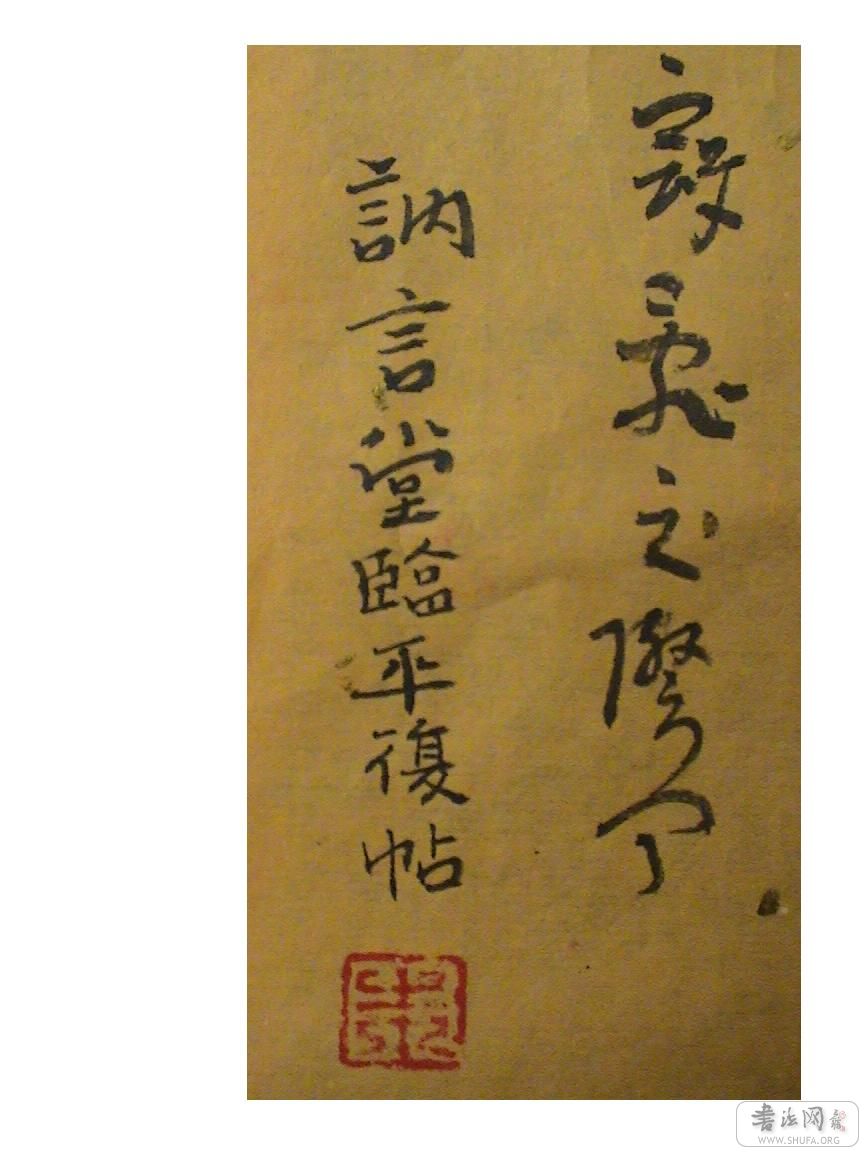 寇亂之際聞
訥言堂臨平復帖
書法网
WWW.SHUFA.ORG